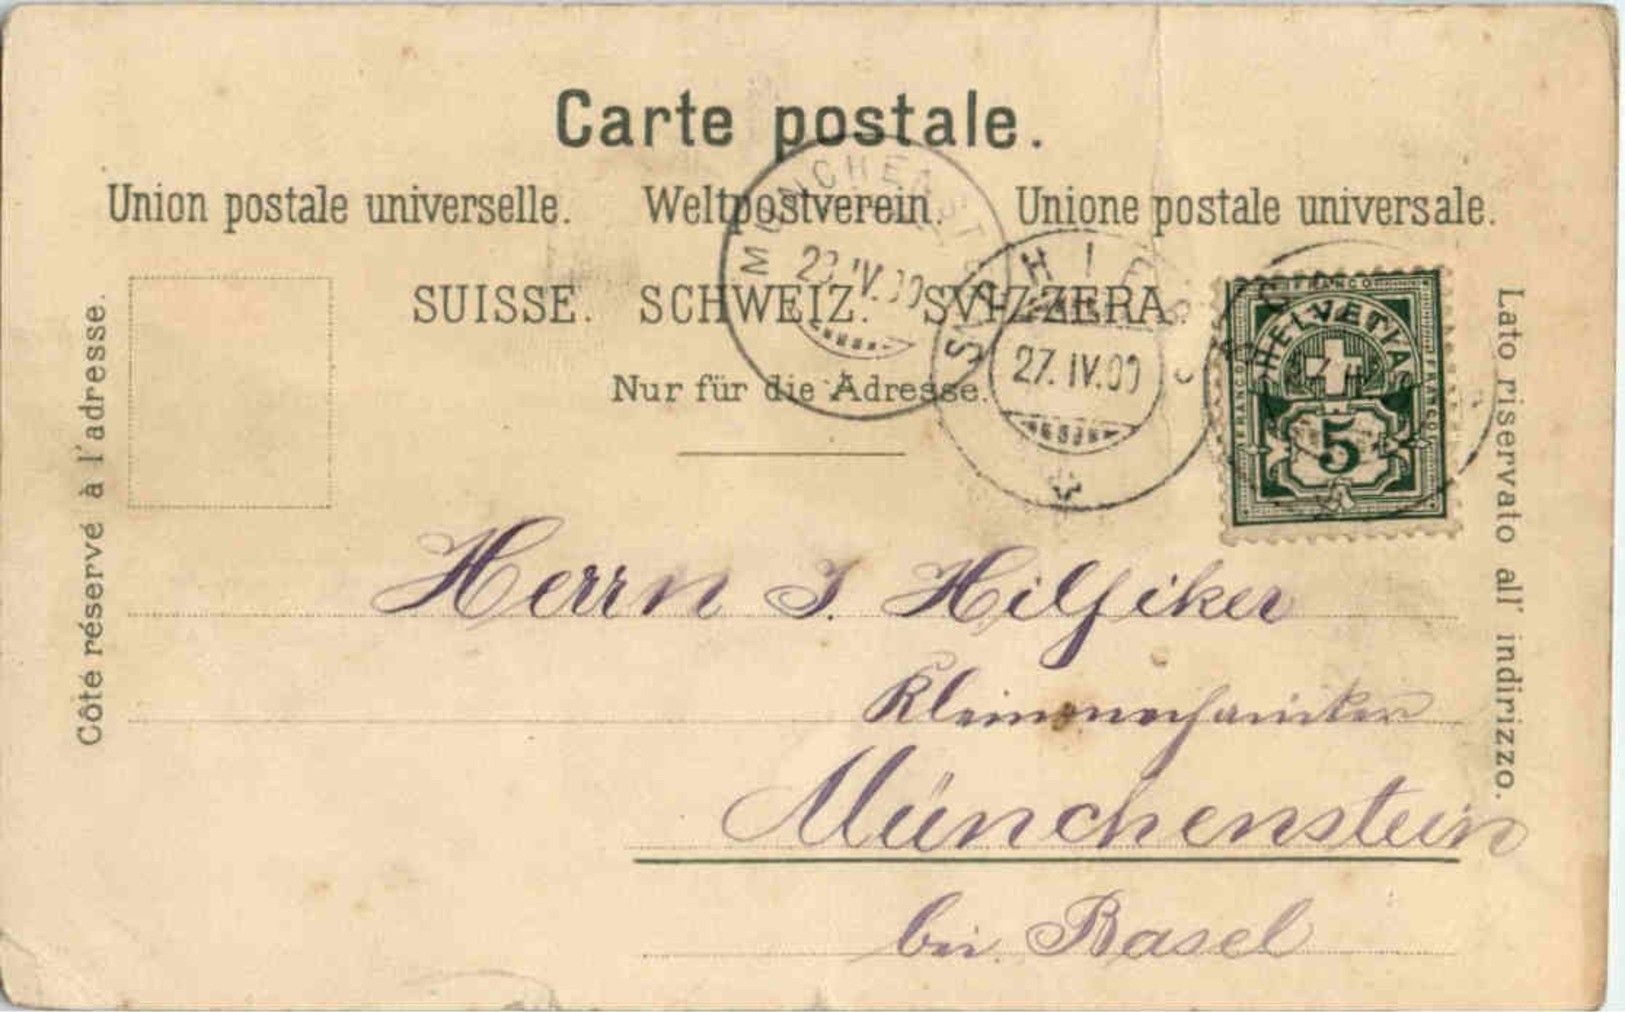 Carte postale.
Union postale universelle. Weltpostverein. Unione postale universale.
SUISSE. SCHWEIZ. SVIZZERA.
Nur für die Adresse.
Côté réservé à l'adresse.
Lato riservato all' indirizzo.
MÜNCHENST
IV.00
27.IV.00
FRANCO
HELVETIA
FRANCO
FRANCO
5
Herrn J. Hilfiker
Kleinmechaniker
Münchenstein
bei Basel